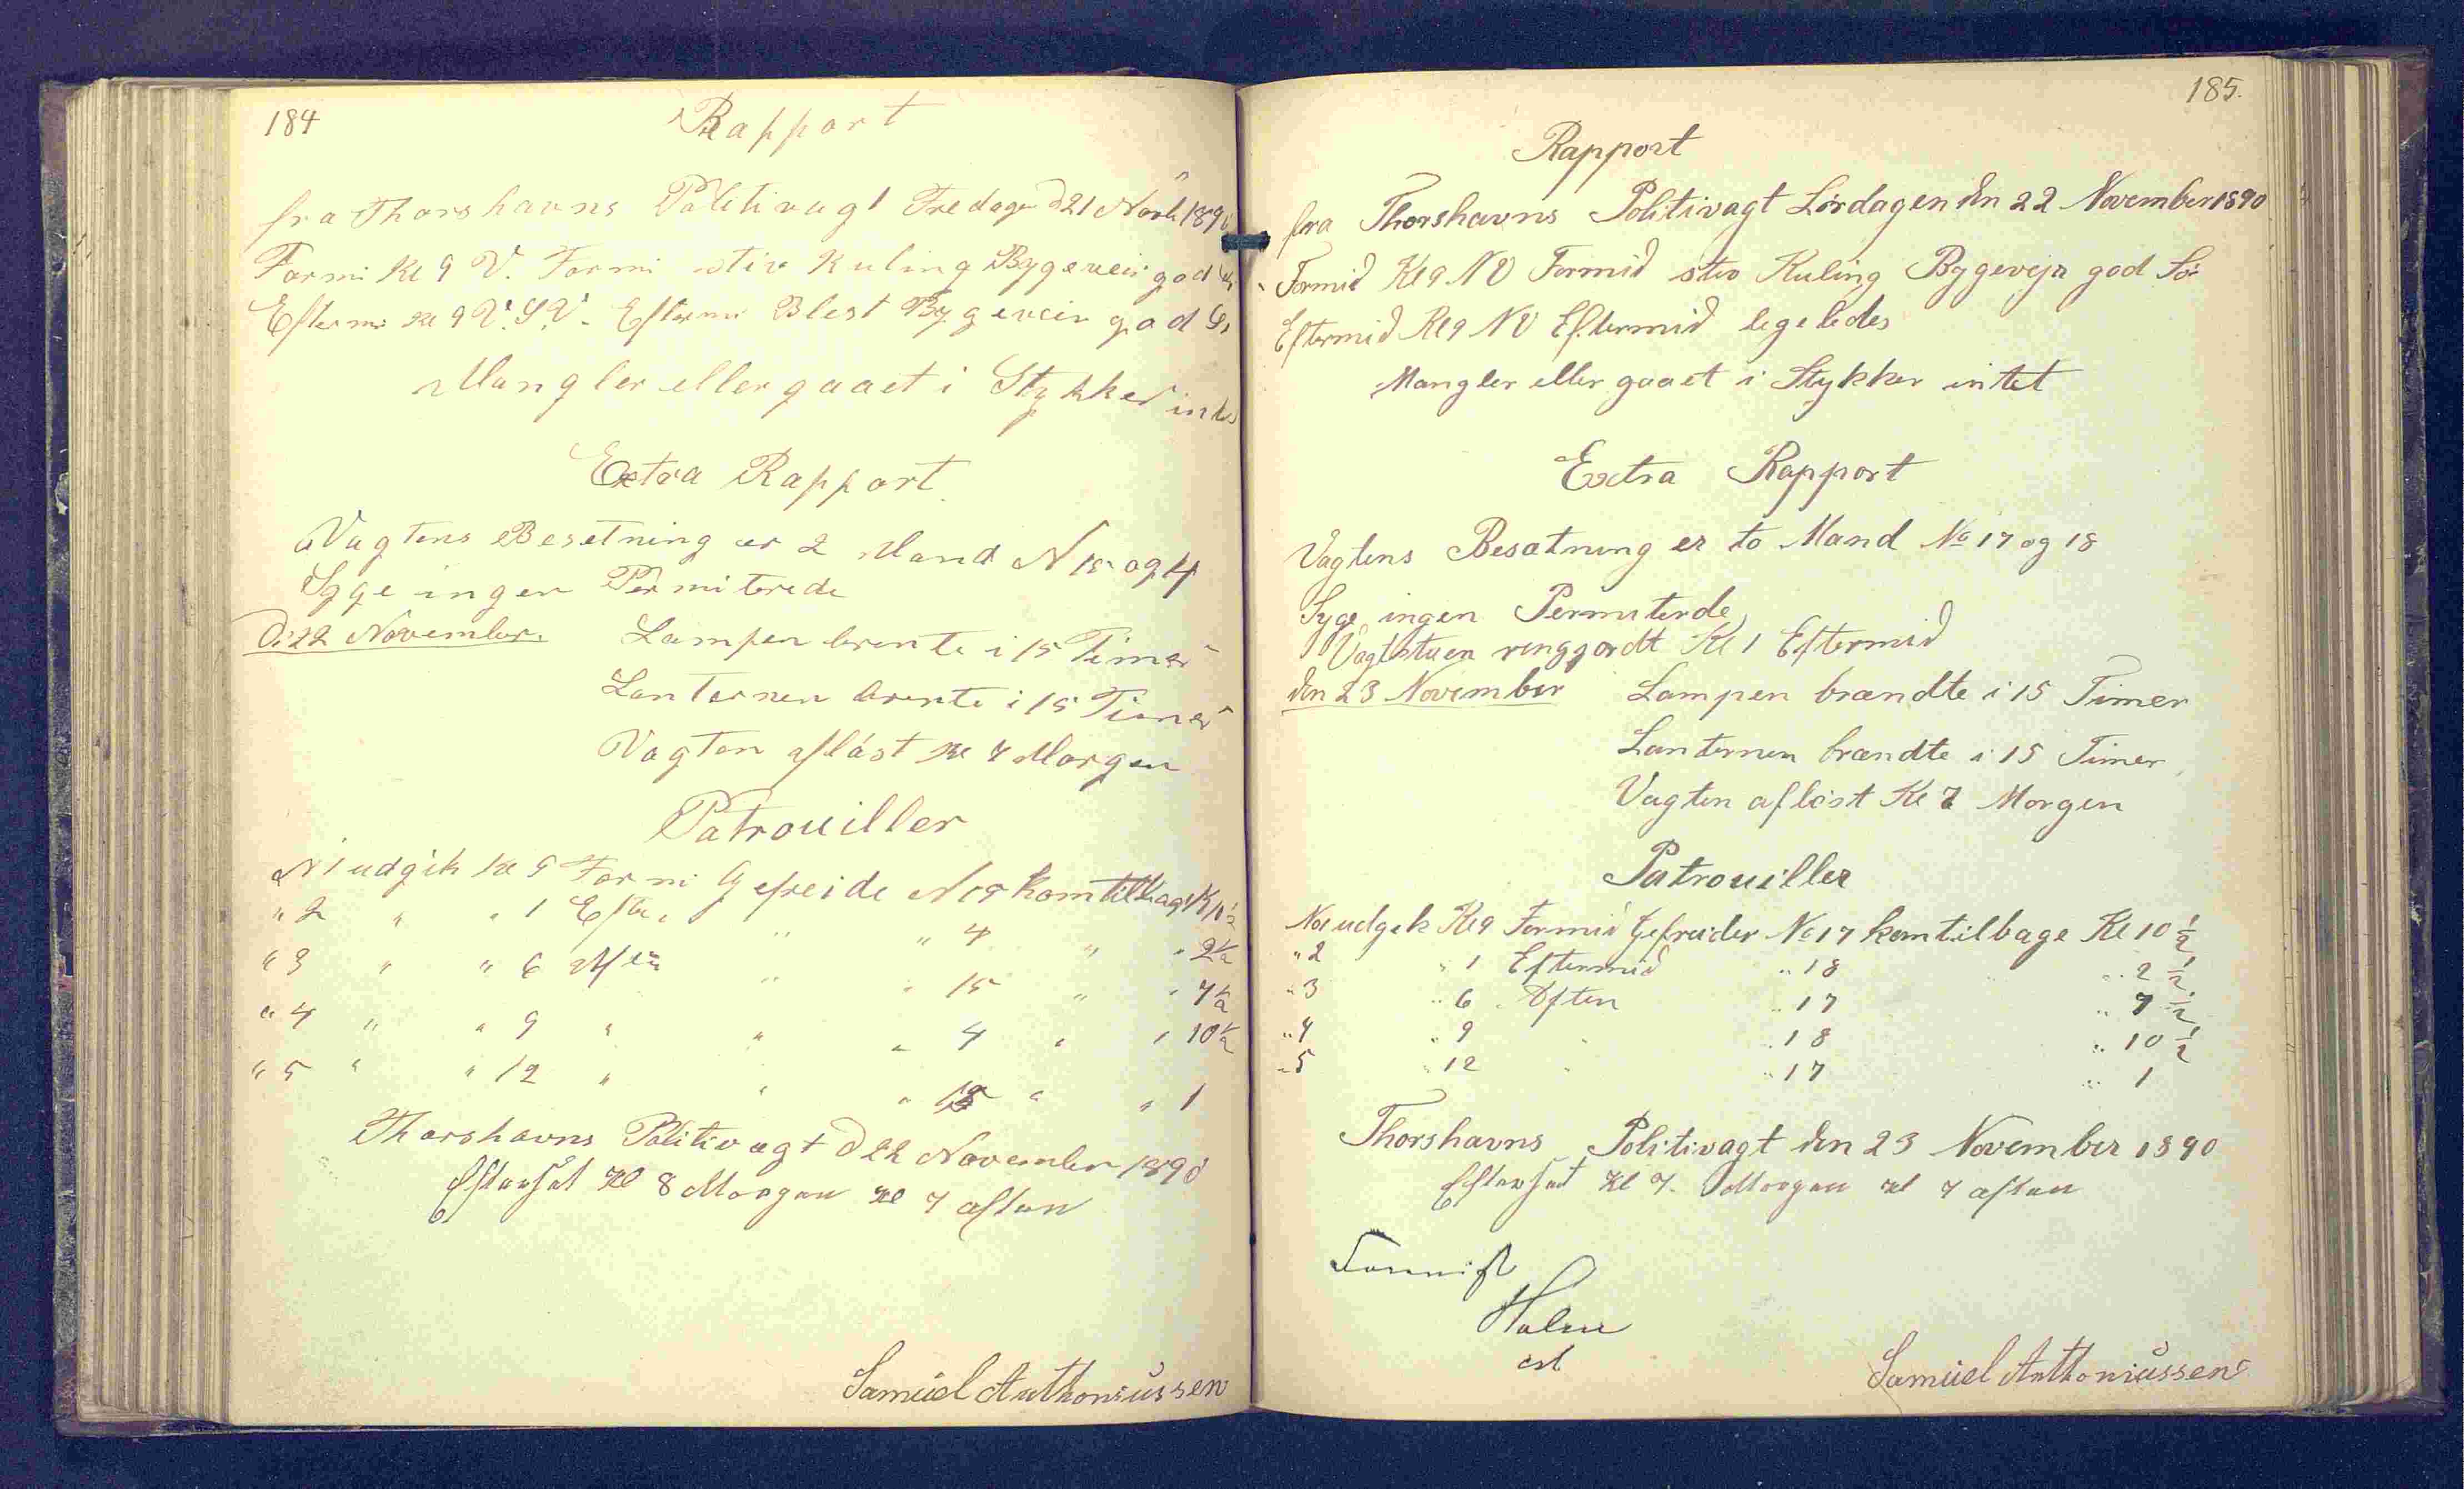 184
Rapport
fra Thorshavns Politivagt Fredagn d 21 Novb 1890
Formi Kl 9 V. Formi stiv Kuling Bygeveir god
Eftermi Kl 9 V.S.V. Eftermi Blest Bygeveir god
Mangler eller gaaet i Stykker intet
Extra Rapport
Vagtens Besetning er 2 Mand N 15 og 4
Syge ingen Permiterede
D. 22 November. Lampen brente i 15 Timer
Lanternen brente i 15 Timer
Vagten aflöst Kl 7 Morgen
Patrouiller
N 1 udgik Kl 9 Formi Gefreide N 15 kom tilbage Kl 10½
" 2 " " 1 Efter " " 4 " " 2½
" 3 " " 6 Aften " " 15 " " 7½
" 4 " " 9 " " " 4 " " 10½
" 5 " " 12 " " " 15 " " 1
Thorshavns Politivagt d 22 November 1890
Efterset Kl 8 Morgen Kl 7 aften
Samúel Anthoniússen
185.
Rapport
fra Thorshavns Politivagt Lördagen den 22 November 1890
Formid Kl 9 NV Formid stiv Kuling Bygevejr god Sö
Eftermid Kl 9 NV Eftermid legeledes
Mangler eller gaaet i Stykker intet
Extra Rapport
Vagtens Besætning er to Mand No 17 og 18
Syge ingen Permiterde
Vagtstuen renggordt Kl 1 Eftermid
den 23 November Lampen brændte i 15 Timer
Lanternen brændte i 15 Timer
Vagten aflöst Kl 7 Morgen
Patrouiller
No 1 udgek Kl 9 Formid Gefreider No 17 kom tilbage Kl 10 ½
" 2 " 1 Eftermid " 18 " 2 ½
" 3 " 6 Aften " 17 " 7 ½
" 4 " 9 " " 18 " 10 ½
" 5 " 12 " " 17 " 1
Thorshavns Politivagt den 23 November 1890
Efterset Kl 7. Morgen Kl 7 aften
Holm
Samúel Anthoniússen